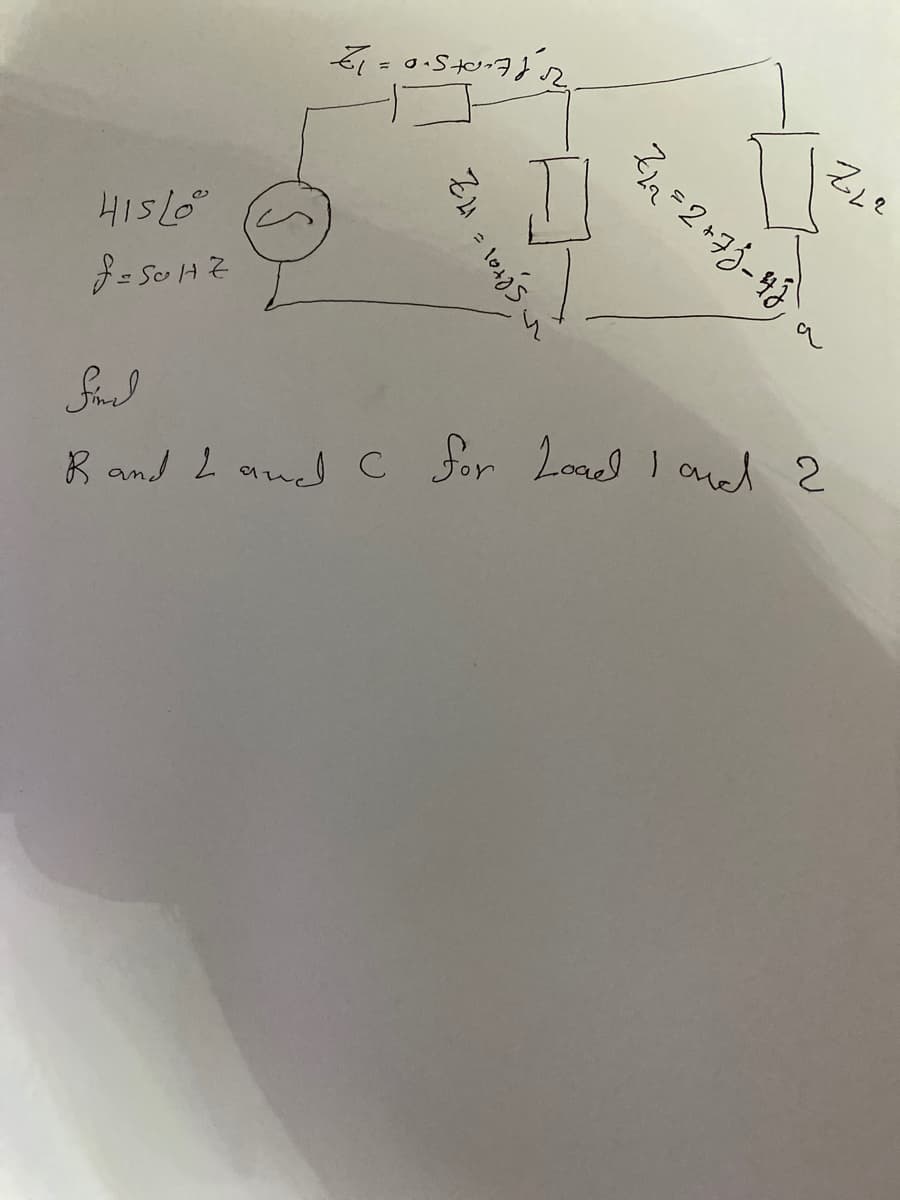 Z1 = 0.5+0.7j Ω
415∠0°
f=50HZ
ZL2 = 2+7j-4j
ZL2
find
R and L and C for Load 1 and 2